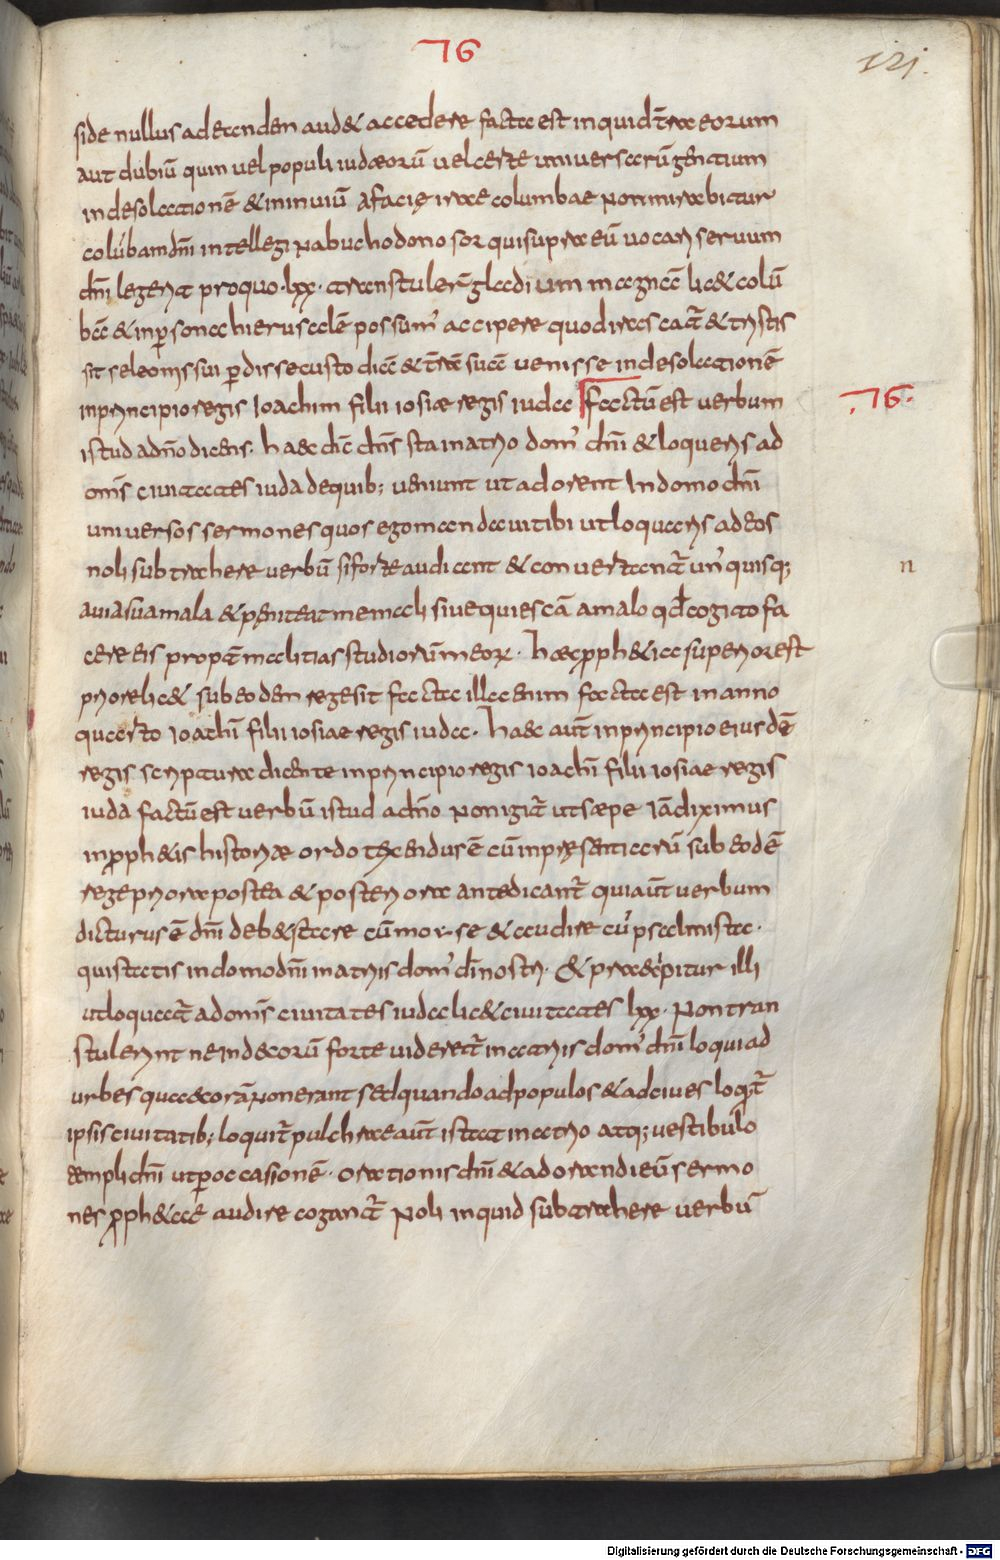 76
121.
side nullus ad edendem aud& accedere facta est inquid t̄ra eorum
aut dubiū quin uel populi iudæorū uel certe uniuersarū gentium
in desolationē & in inuiū a facię iræ columbae non mirabitur
colūbam dn̄i intellegi nabuchodonosor qui supra eū uocari seruum
dn̄i legerit pro quo lxx. transtuler̄ gladium magnū lic& colū
bā & in p̄sona hierusalē possum' accipere quod iras eat̄ & tristis
sit se leonis sui p̄disse custodiā & t̄rā suā uenisse in desolationē
in principio regis ioachim filii iosiæ regis iuda factū est uerbum
76.
istud a dn̄o dicens. haec dic̄ dn̄s sta in atrio dom' dn̄i & loqueris ad
om̄s ciuitates iuda de quib; ueniunt ut adorent in domo dn̄i
uniuersos sermones quos ego mandaui tibi ut loquaris ad eos
noli subtrahere uerbū si forte audiant & conuertant̄ un' quisq;
n
a uia sua mala & pęniteat me mali siue quiescā a malo qđ cogito fa
cere eis propt̄ malitias studiorū meor. haec pph&ia superior est
priore lic& sub eodem rege sit facta illa enim facta est in anno
quarto ioachī filii iosiae regis iuda. haec aut̄ in principio eiusdē
regis scriptura dicente in principio regis ioachī filii iosiae regis
iuda factū est uerbū istud a dn̄o non igit̄ ut sæpe iā diximus
in pph&is historiæ ordo texendus ē cū in pręsentiarū sub eodē
rege priora postea & posteriora ante dicant̄ qui aūt uerbum
dicturus ē dn̄i deb& stare cū morse & audire cū psalmista.
qui statis in domo dn̄i in atriis dom' dī nostri. & præcipitur illi
ut loquat̄ ad om̄s ciuitates iuda lic& ciuitates lxx. non tran
stulerint ne indecorū forte uideret̄ in atriis dom' dn̄i loqui ad
urbes quae coram non erant sed quando ad populos & ad ciues loqt̄
ipsis ciuitatib; loquit̄ pulchrae aut̄ istat in atrio atq; uestibulo
templi dn̄i ut p̄ occasionē. orationis dn̄i & adorandi eū sermo
nes pph&ae audire cogant̄ noli inquid subtrahere uerbū
Digitalisierung gefördert durch die Deutsche Forschungsgemeinschaft - DFG